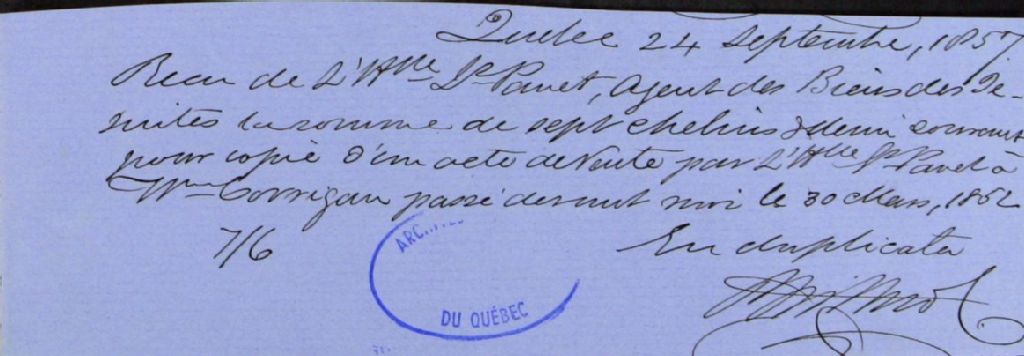 Quebec 24 Septembre, 1857
Recu de L'Hble Ls Panet, Agent des Biens des Jé-
suites la somme de sept chelins & demi courant
pour copie d'un acte de vente par L'Hble Ls Panet à
Wm Corrigan passé devant moi le 30 Mars, 1852
7/6 En duplicata
ARC
DU QUÉBEC